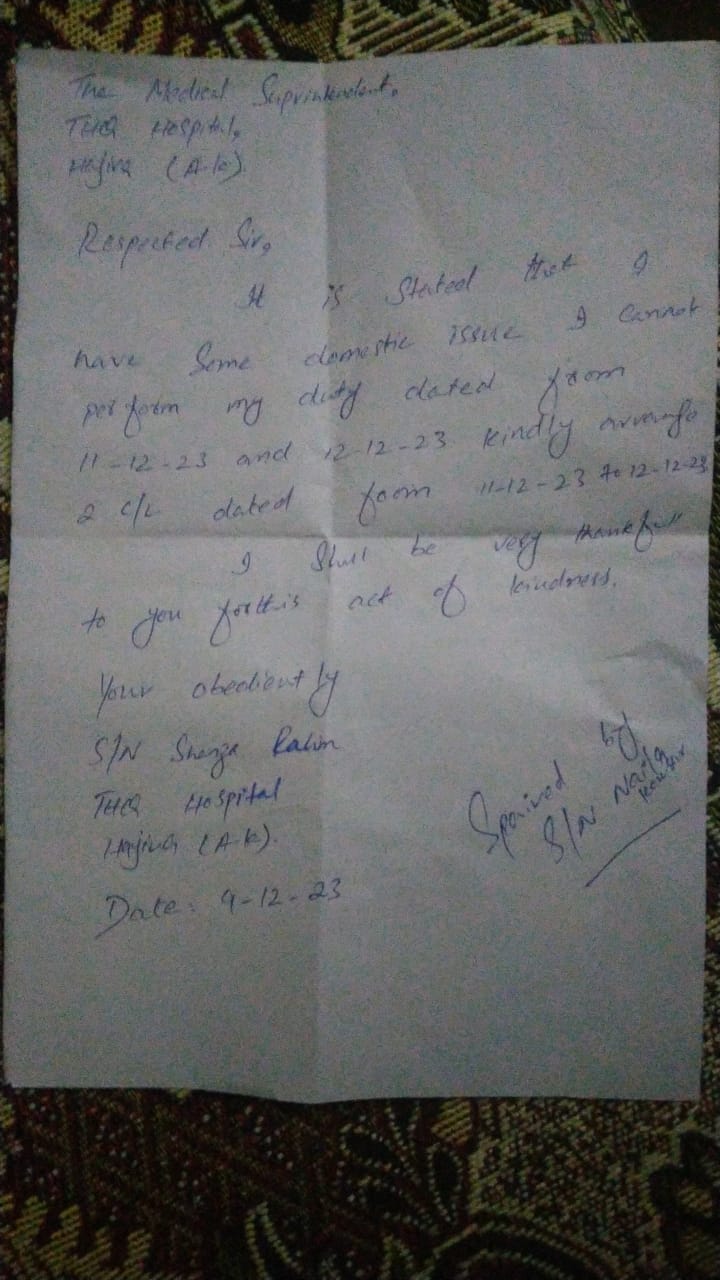 The Medical Suprintendent,
THQ Hospital,
Hajira (A.k).
Respected Sir,
It is Stated that I
have Some domestic issue I cannot
perform my duty dated from
11-12-23 and 12-12-23 kindly arrange
2 C/L dated from 11-12-23 to 12-12-23
I Shall be very thankfull
to you for this act of kindness.
Your obediently
S/N Rahim
THQ Hospital
Hajira (A.k).
Date: 9-12-23
Spaired by
S/N Naila